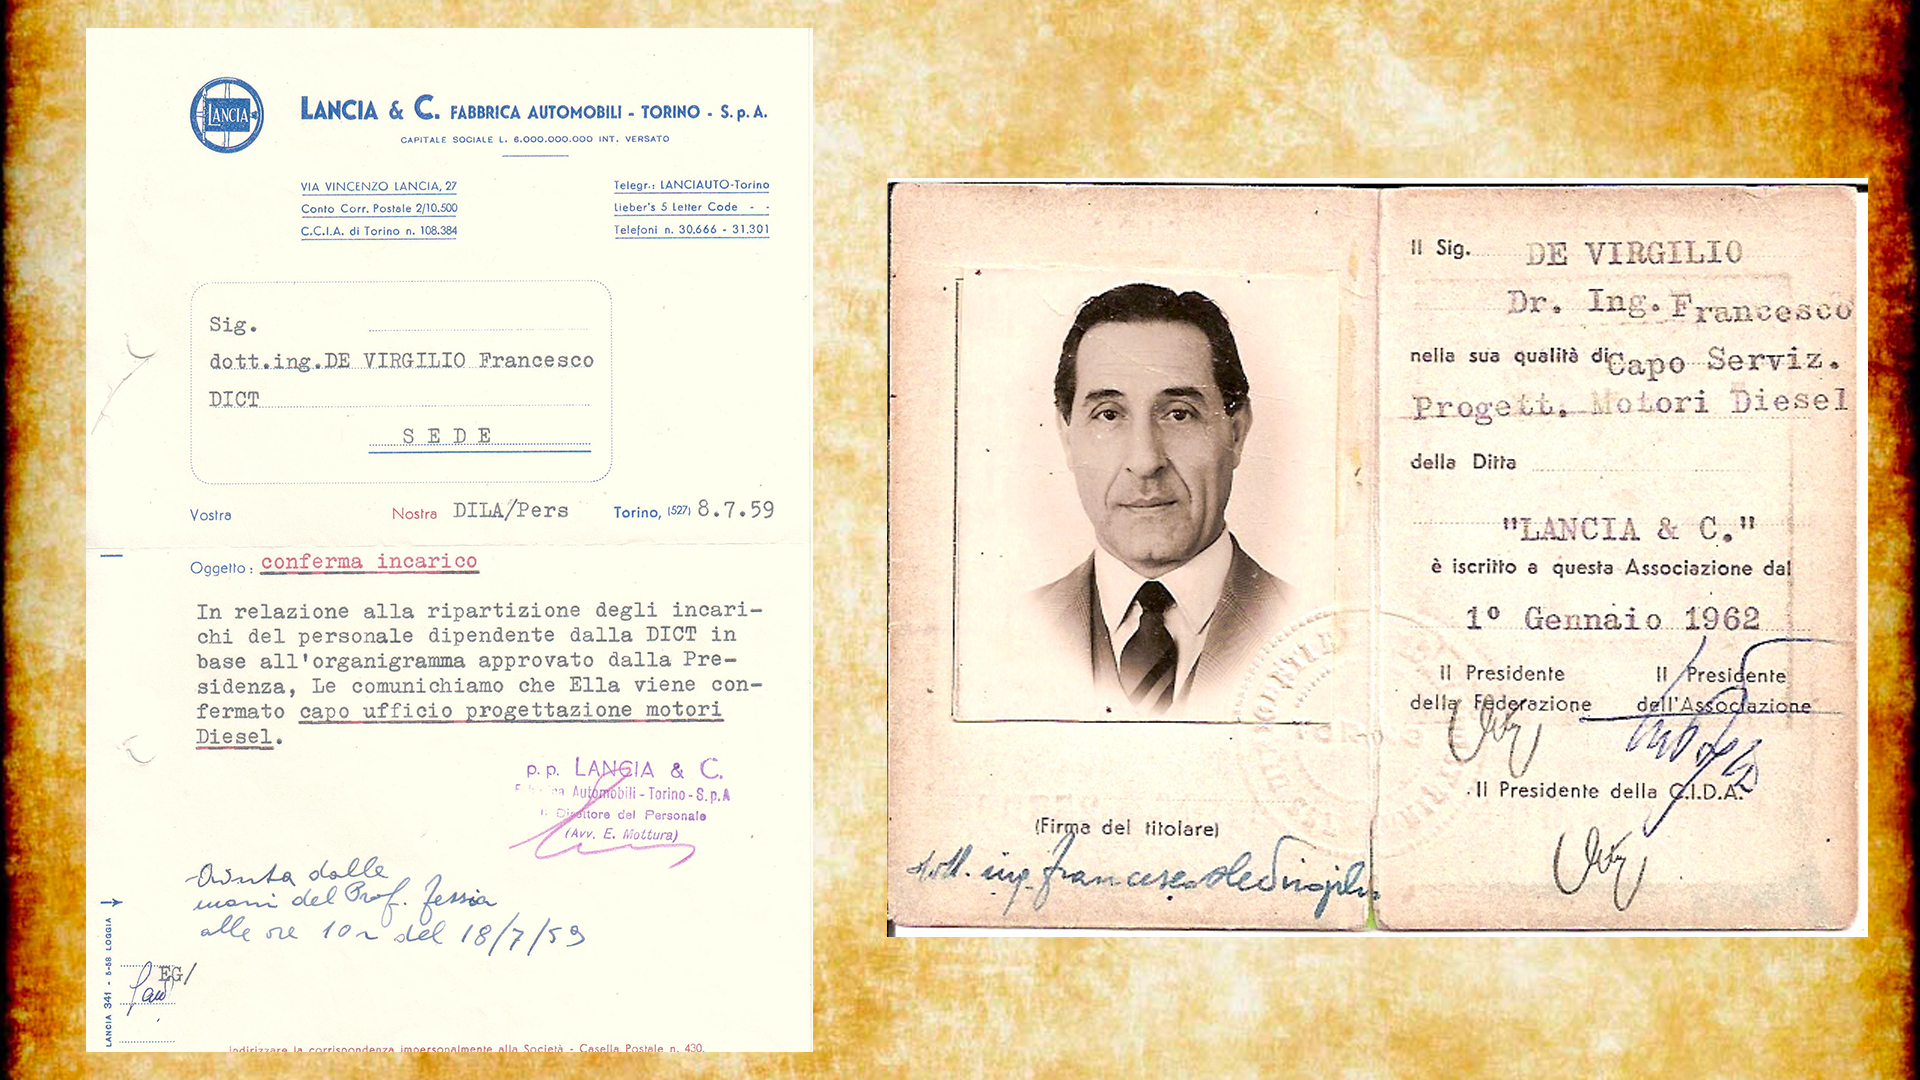 LANCIA
LANCIA & C. FABBRICA AUTOMOBILI - TORINO - S.p.A.
CAPITALE SOCIALE L. 6.000.000.000 INT. VERSATO
VIA VINCENZO LANCIA, 27
Conto Corr. Postale 2/10.500
C.C.I.A. di Torino n. 108.384
Telegr.: LANCIAUTO-Torino
Lieber's 5 Letter Code - -
Telefoni n. 30.666 - 31.301
Sig.
dott.ing.DE VIRGILIO Francesco
DICT
SEDE
Vostra Nostra DILA/Pers Torino, (527) 8.7.59
Oggetto: conferma incarico
In relazione alla ripartizione degli incari-
chi del personale dipendente dalla DICT in
base all'organigramma approvato dalla Pre-
sidenza, Le comunichiamo che Ella viene con-
fermato capo ufficio progettazione motori
Diesel.
p. p. LANCIA & C.
Automobili - Torino - S.p.A
Il Direttore del Personale
(Avv. E. Mottura)
dalle
mani del Prof. Fessia
alle ore 10 del 18/7/59
EG/
LANCIA 341 - 5-58 LOGGIA
Indirizzare la corrispondenza impersonalmente alla Società - Casella Postale n. 430.
(Firma del titolare)
dott. ing. Francesco De Virgilio
Il Sig. DE VIRGILIO
Dr. Ing. Francesco
nella sua qualità di Capo Serviz.
Progett. Motori Diesel
della Ditta
"LANCIA & C."
è iscritto a questa Associazione dal
1º Gennaio 1962
Il Presidente della Federazione
Il Presidente dell'Associazione
Il Presidente della C.I.D.A.